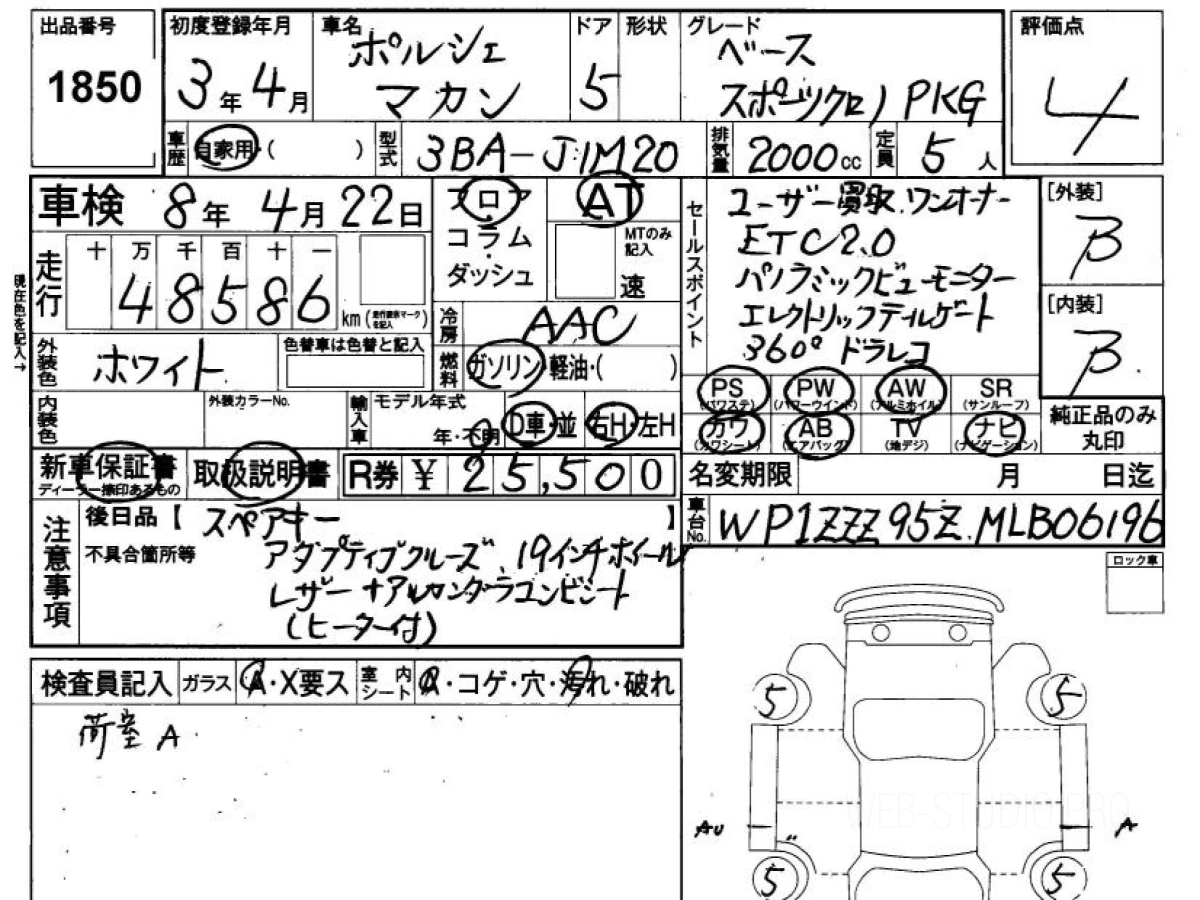 出品番号
1850
初度登録年月
3年4月
車名
ポルシェ
マカン
ドア
5
形状
グレード
ベース
スポーツクロノPKG
評価点
4
車歴
自家用・( )
型式
3BA-J1M20
排気量
2000cc
定員
5人
車検
8年4月22日
フロア
コラム
ダッシュ
AT
MTのみ記入
速
セールスポイント
ユーザー買取.ワンオーナー
ETC2.0
パノラミックビューモニター
エレクトリックテイルゲート
360°ドラレコ
[外装]
B
[内装]
B
現在色を記入→
走行
十万千百十一
48586
km(走行距離マークを記入)
冷房
AAC
外装色
ホワイト
色替車は色替と記入
燃料
ガソリン・軽油・( )
PS
(パワステ)
PW
(パワーウインド)
AW
(アルミホイル)
SR
(サンルーフ)
カワ
(カワシート)
AB
(エアバッグ)
TV
(地デジ)
ナビ
(ナビゲーション)
純正品のみ
丸印
内装色
外装カラーNo.
輸入車
モデル年式
年・不明
D車・並
右H・左H
新車保証書
ディーラー捺印あるもの
取扱説明書
R券 ¥ 25,500
名変期限
月 日迄
車台No.
WP1ZZZ95Z.MLB06196
注意事項
後日品【 スペアキー 】
不具合箇所等
アダプティブクルーズ、19インチホイール
レザー+アルカンターラコンビシート
(ヒーター付)
ロック車
検査員記入
ガラス
A・X要ス
室内シート
A・コゲ・穴・汚れ・破れ
荷室A
5
5
AU
A
5
5
WEB-STUDIO.PRO